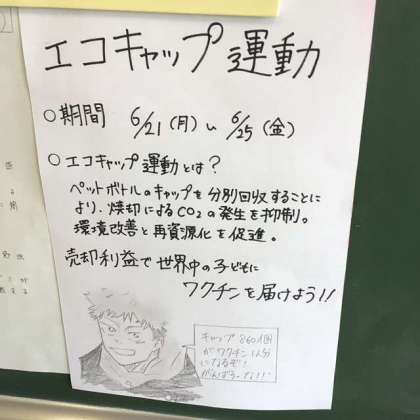 エコキャップ運動
○期間 6/21(月)～6/25(金)
○エコキャップ運動とは?
ペットボトルのキャップを分別回収することに
より、焼却によるCO2の発生を抑制。
環境改善と再資源化を促進。
売却利益で世界中の子どもに
ワクチンを届けよう!!
キャップ860個
がワクチン1人分
になるぞ!
がんばろーな!!